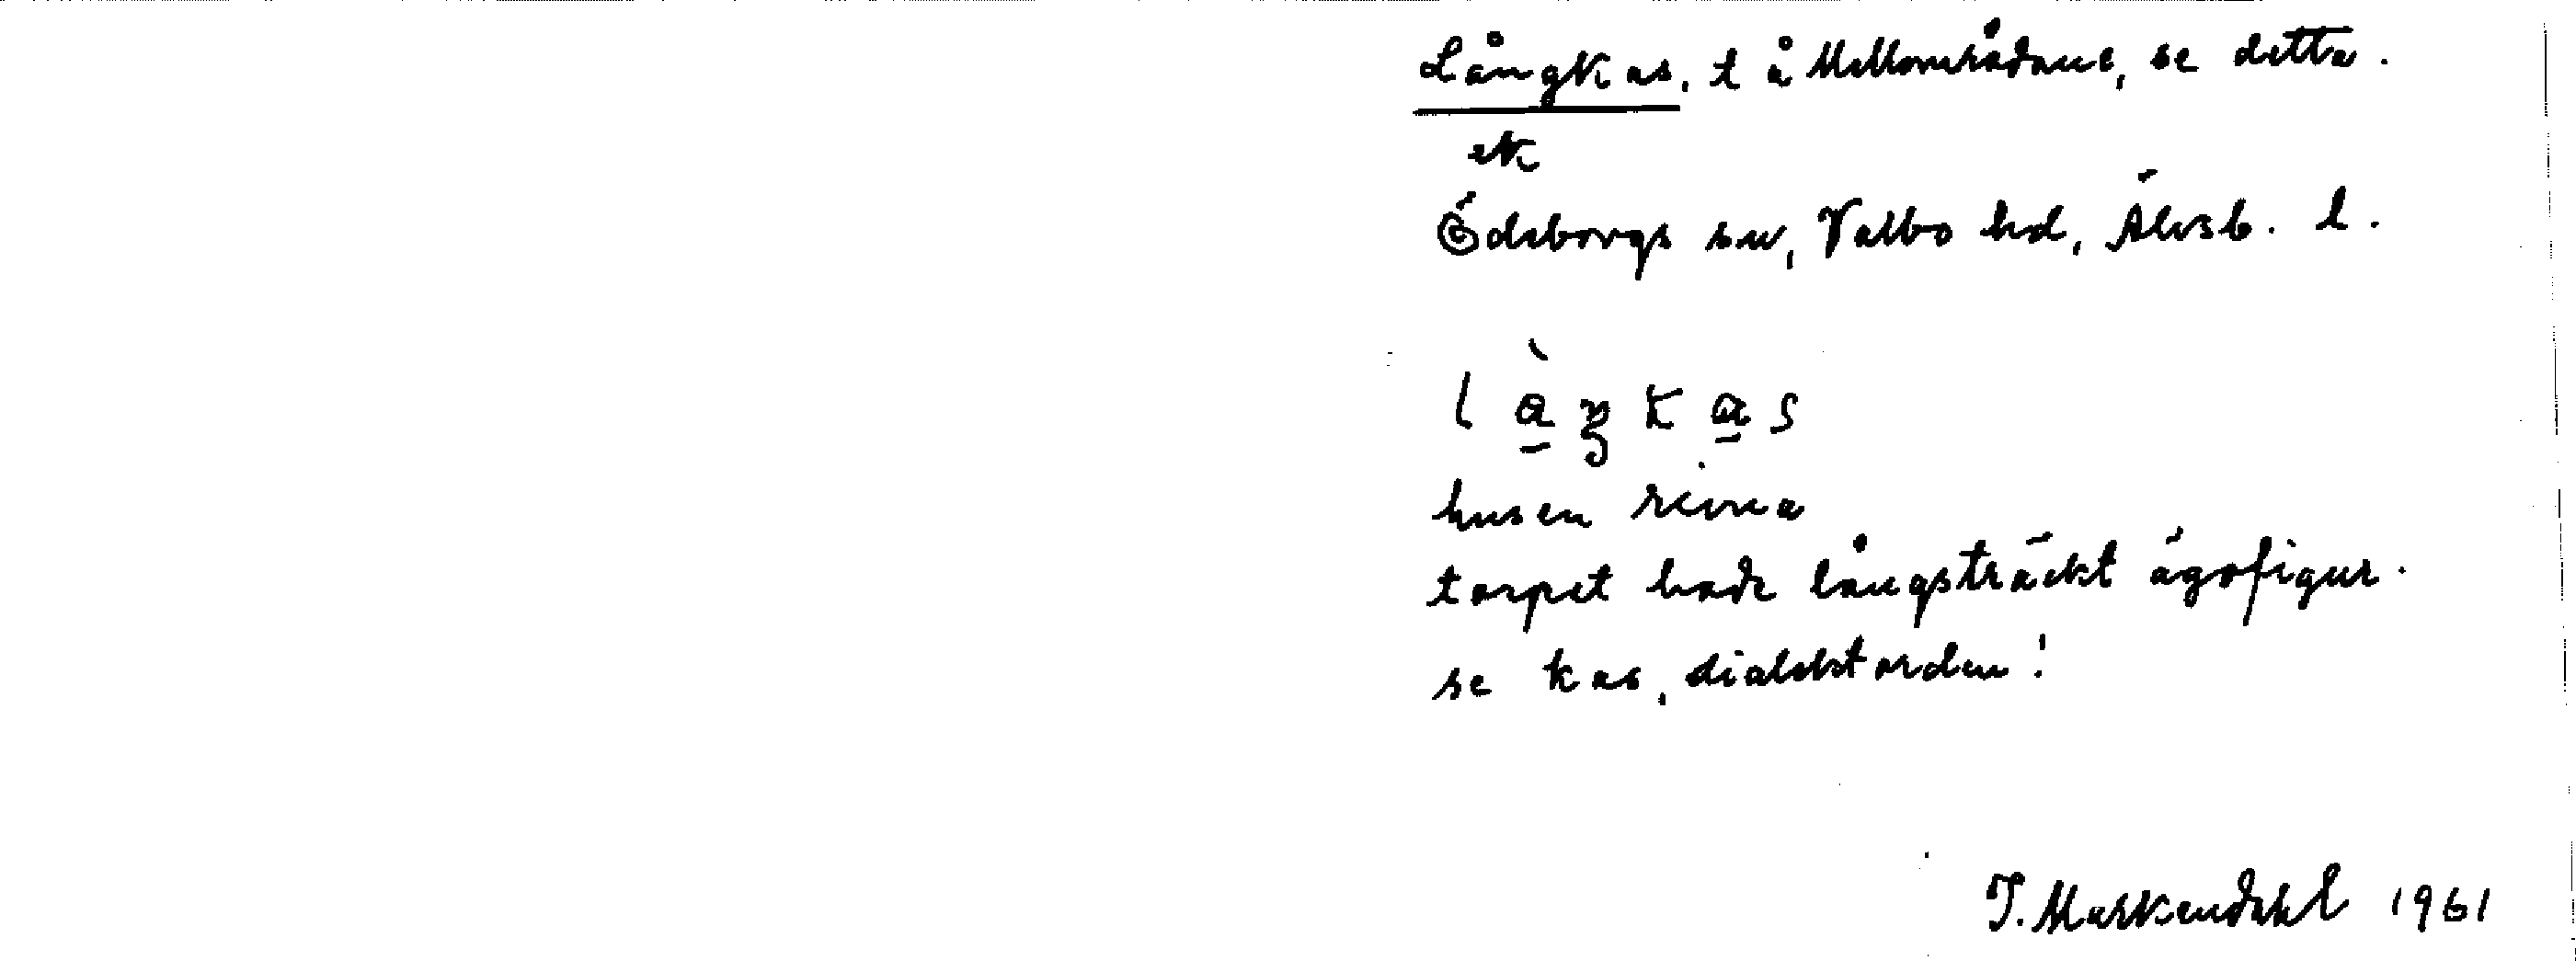 Långkas, t å Mellområdane, se detta.
ek
Ödeborgs sn, Valbo hd, Älvsb. l.
l à̱ ŋ k a̱ s
husen rivna
torpet hade långsträckt ägofigur.
se kas, dialektorden!
T. Markendahl 1961